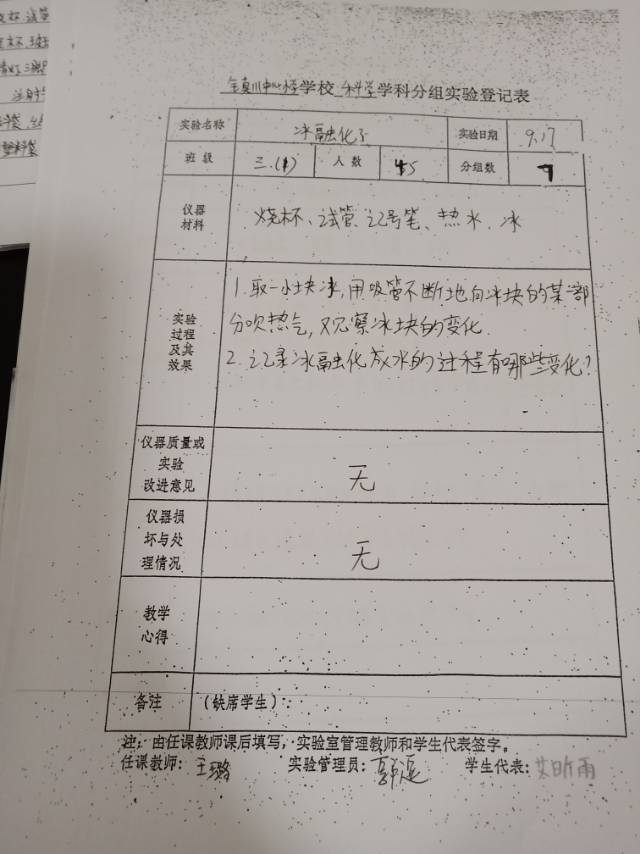 中心小学学校 科学学科分组实验登记表
实验名称 冰融化了 实验日期 9.17
班级 三.(1) 人数 45 分组数
仪器
材料
烧杯、试管、记号笔、热水、冰
实验
过程
及其
效果
1.取一小块冰,用吸管不断地向冰块的某部
分吹热气,观察冰块的变化.
2.记录冰融化成水的过程有哪些变化?
仪器质量或
实验
改进意见
无
仪器损
坏与处
理情况
无
教学
心得
备注 (缺席学生):
注:由任课教师课后填写,实验室管理教师和学生代表签字。
任课教师:王璐 实验管理员: 学生代表:艾昕雨